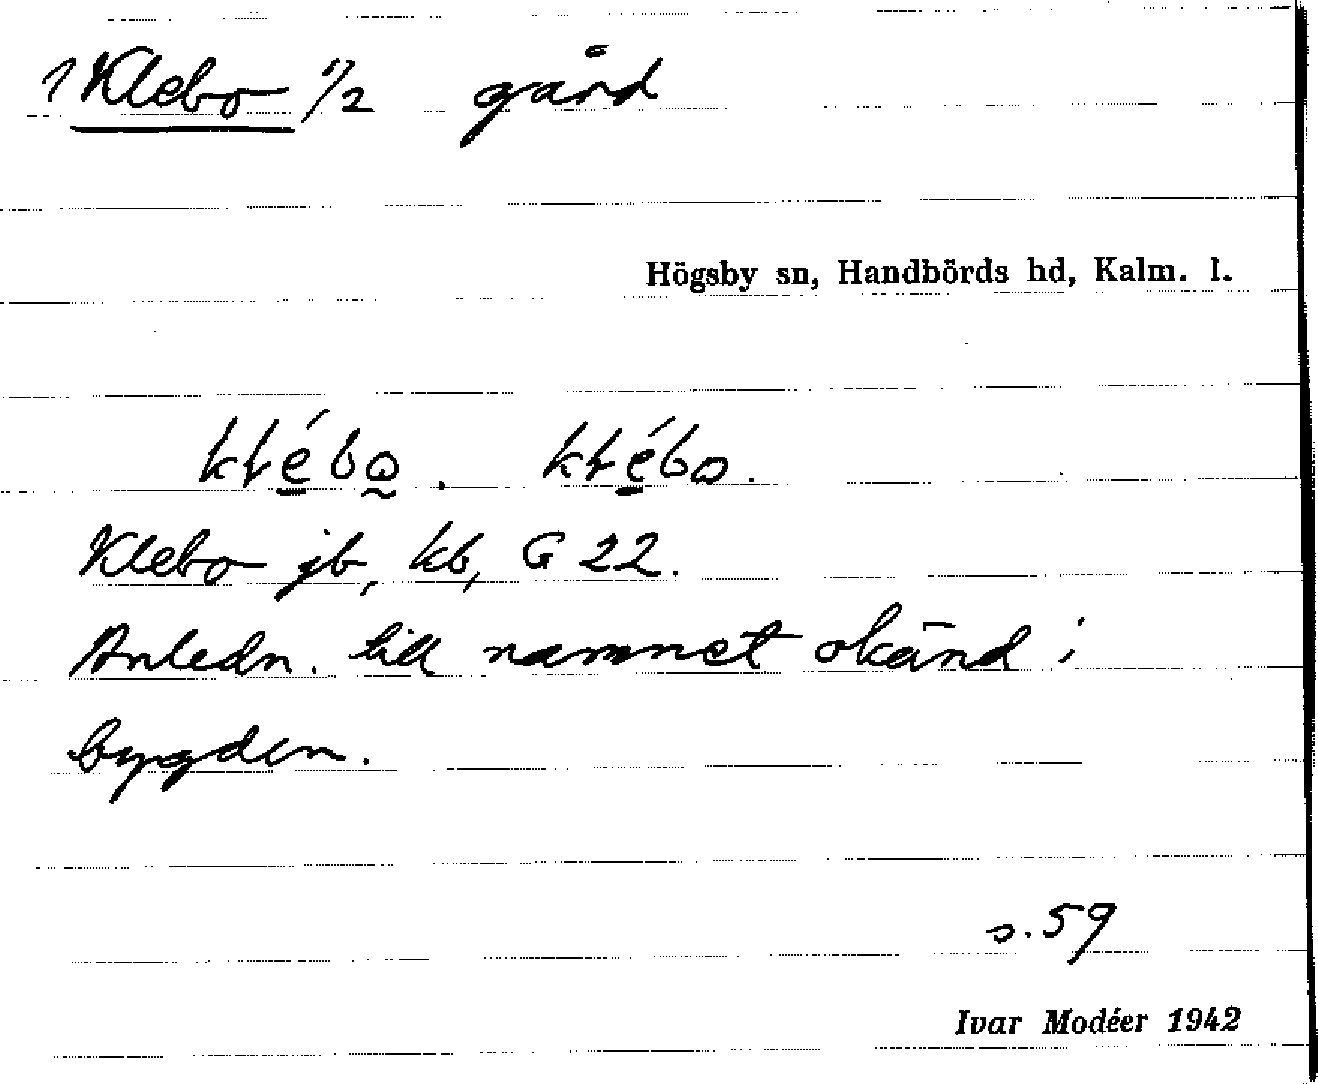 1 Klebo 1/2 gård
Högsby sn, Handbörds hd, Kalm. l.
klébo. klébo.
Klebo jb, kb, G 22.
Anledn. till namnet okänd i
bygden.
s. 59
Ivar Modéer 1942